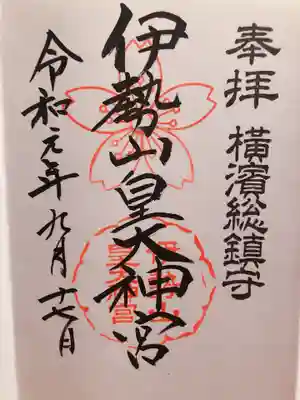 奉拝 横濱総鎮守
伊勢山皇大神宮
令和元年九月十七日